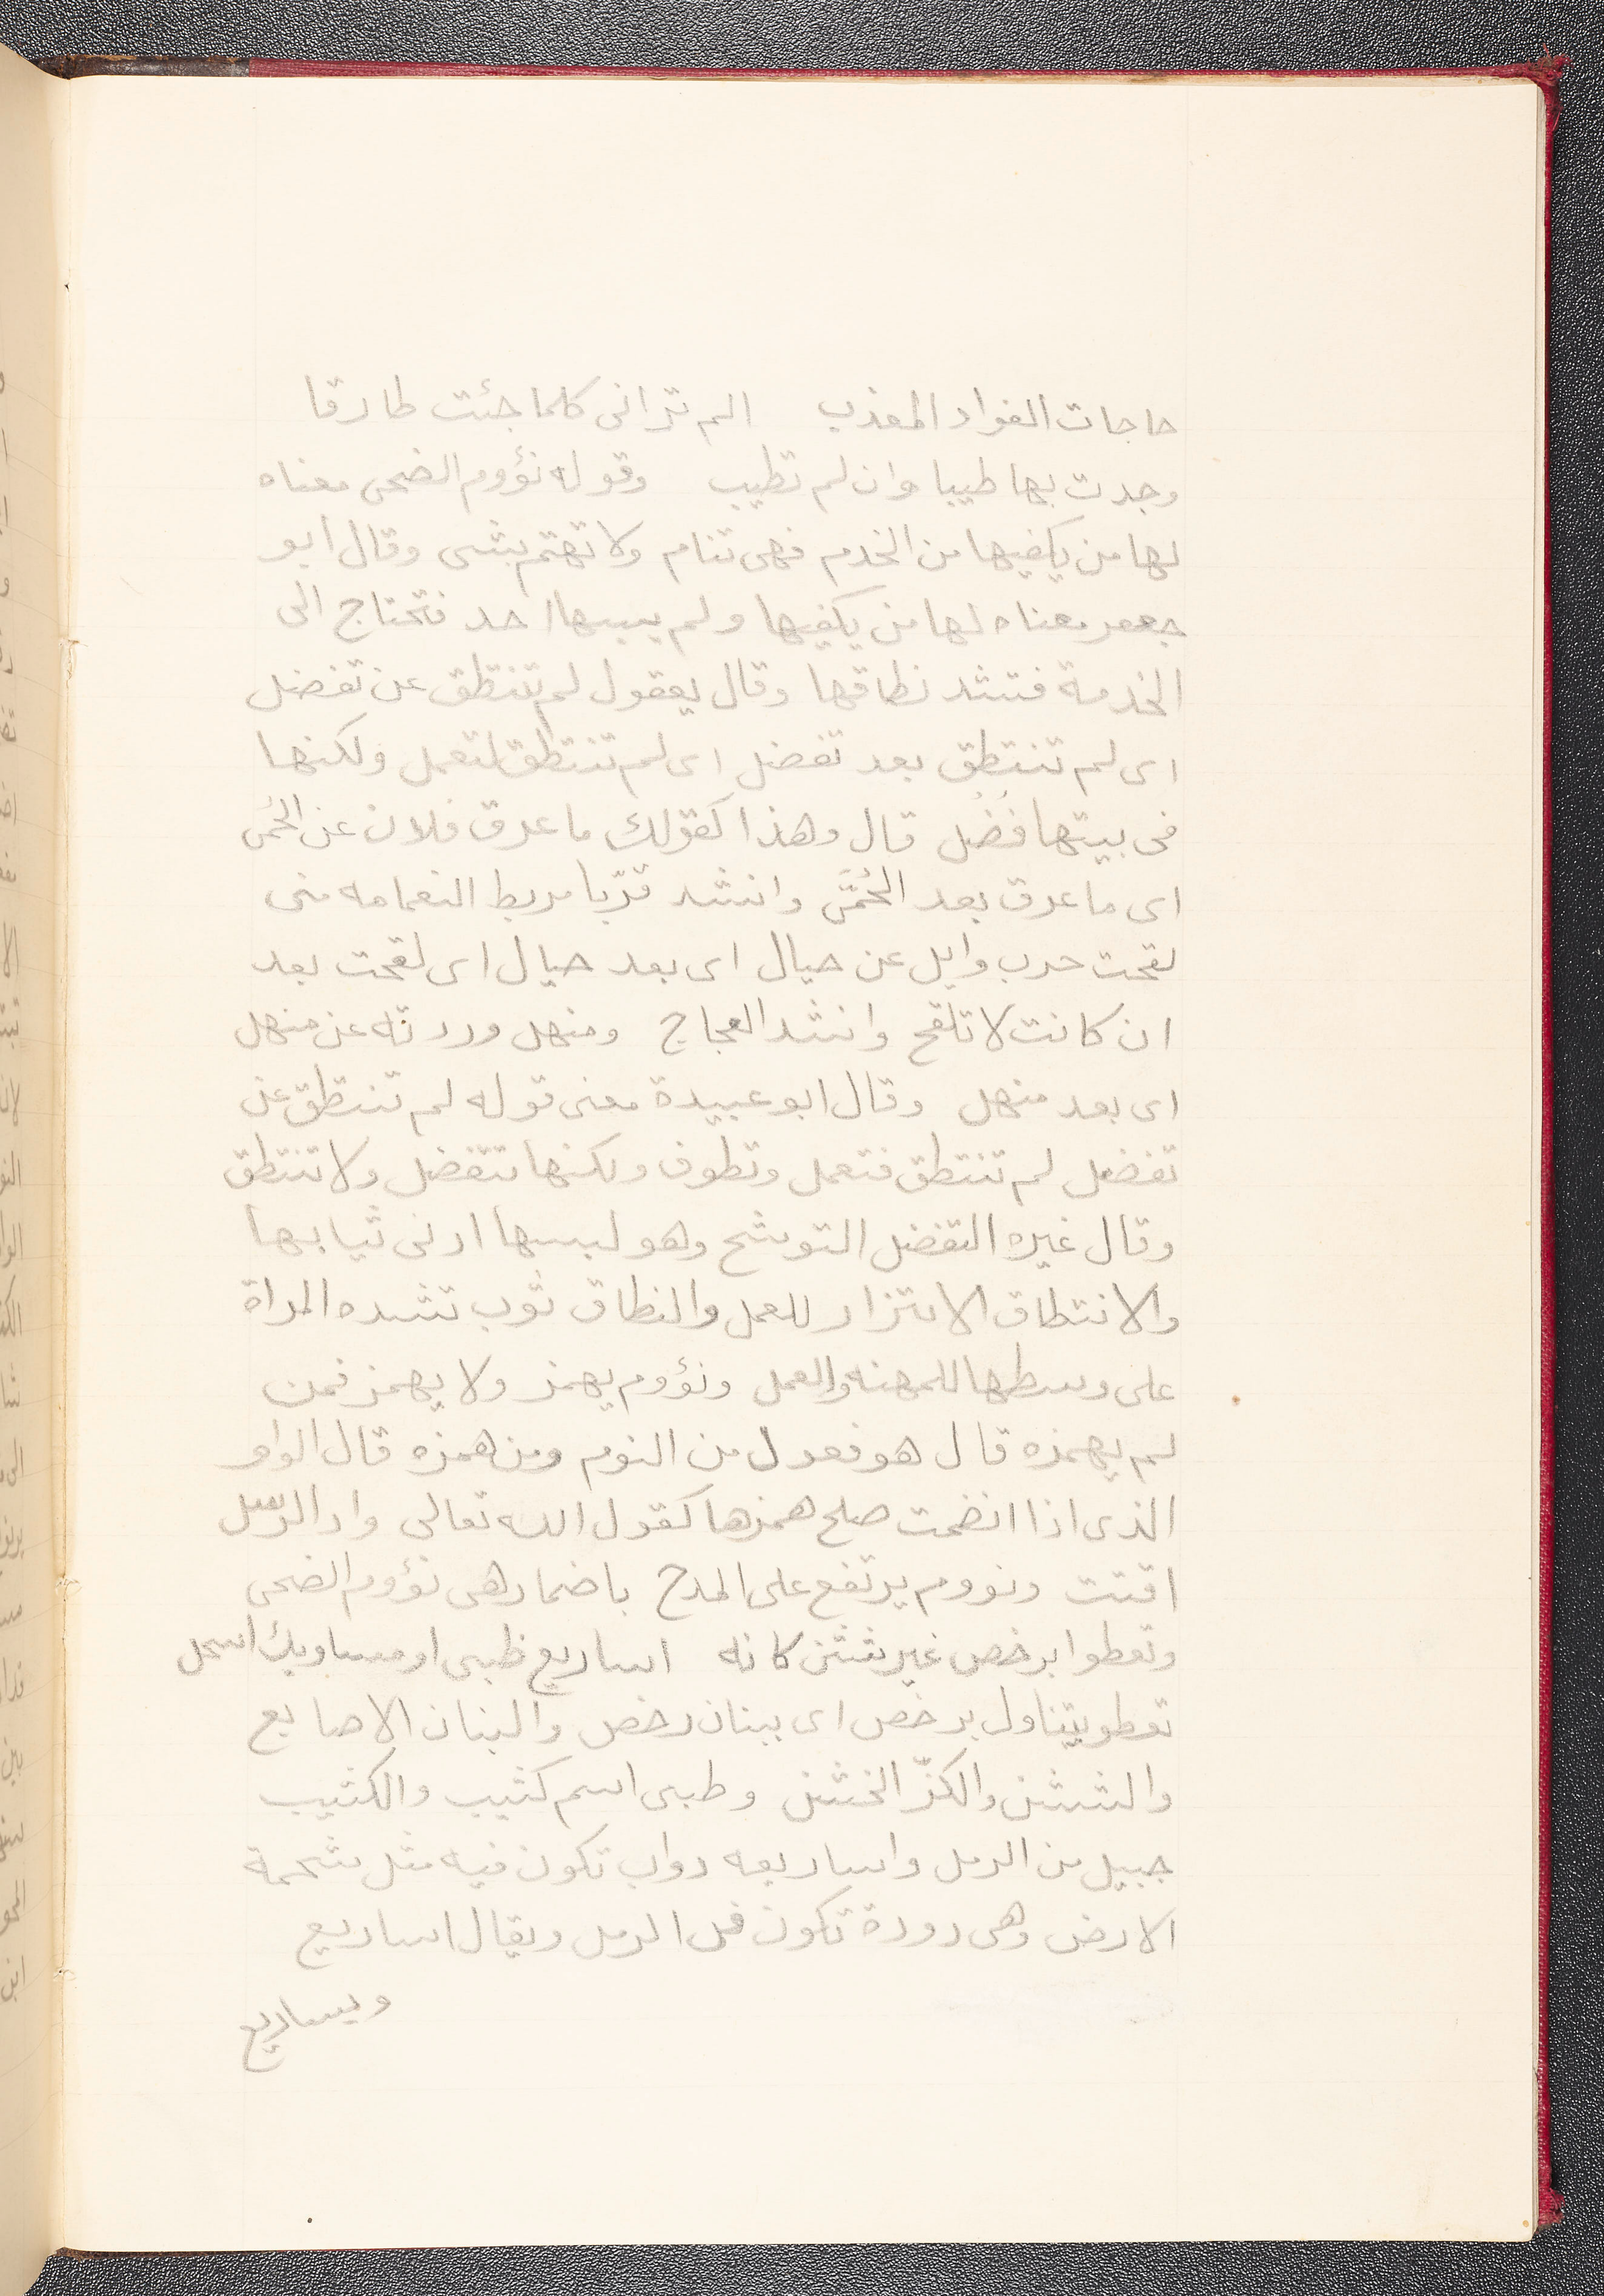 حاجات الفواد المعذب الم ترانى كلما جئت طارقا
وجدت بها طيبا وان لم تطيب وقوله نؤوم الضحى معناه
لها من يكفيها من الخدم فهى تنام ولا تهتم بشى وقال ابو
جعفر معناه لها من يكفيها ولم يسبها احد فتحتاج الى
الخدمة فتشد نطاقها وقال يعقول لم تنتطق عن تفضل
اى لم تنتطق بعد تفضل اى لم تنتطق لتعمل ولكنها
فى بيتها فُضُل قال وهذا كقولك ما عرق فلان عن الحُمى
اى ما عرق بعد الحُمَّى وانشد قرّبا مربط النعامه منى
لقحت حرب وايل عن حيال اى بعد حيال اى لقحت بعد
ان كانت لا تلقح وانشد العجاج ومنهل وردته عن منهل
اى بعد منهل وقال ابو عبيدة معنى قوله لم تنتطق عن
تفضل لم تنتطق فتعمل وتطوف ولكنها تتفضل ولا تنتطق
وقال غيره التفضل التوشح وهو لبسها ادنى ثيابها
والانتطاق الائتزار للعمل والنطاق ثوب تشده المراة
على وسطها للمهنه والعمل ونؤوم يهمز ولا يهمز فمن
لم يهمزه قال هو فعول من النوم ومن همزه قال الواو
الذى اذا انضمت صلح همزها كقول الله تعالى واد الرسل
اقتت ونووم يرتفع على المدح باضمار هى نؤوم الضحى
وتعطوا برخص غير شثن كانه اساريع ظبى او مساويك اسحل
تعطو يتناول برخص اى ببنان رخص والبنان الاصابع
والشثن والكزّ الخشن وطبى اسم كثيب والكثيب
جبيل من الرمل واساريعه دواب تكون فيه مثل شحمة
الارض وهى دودة تكون فى الرمل ويقال اساريع
ويساريع